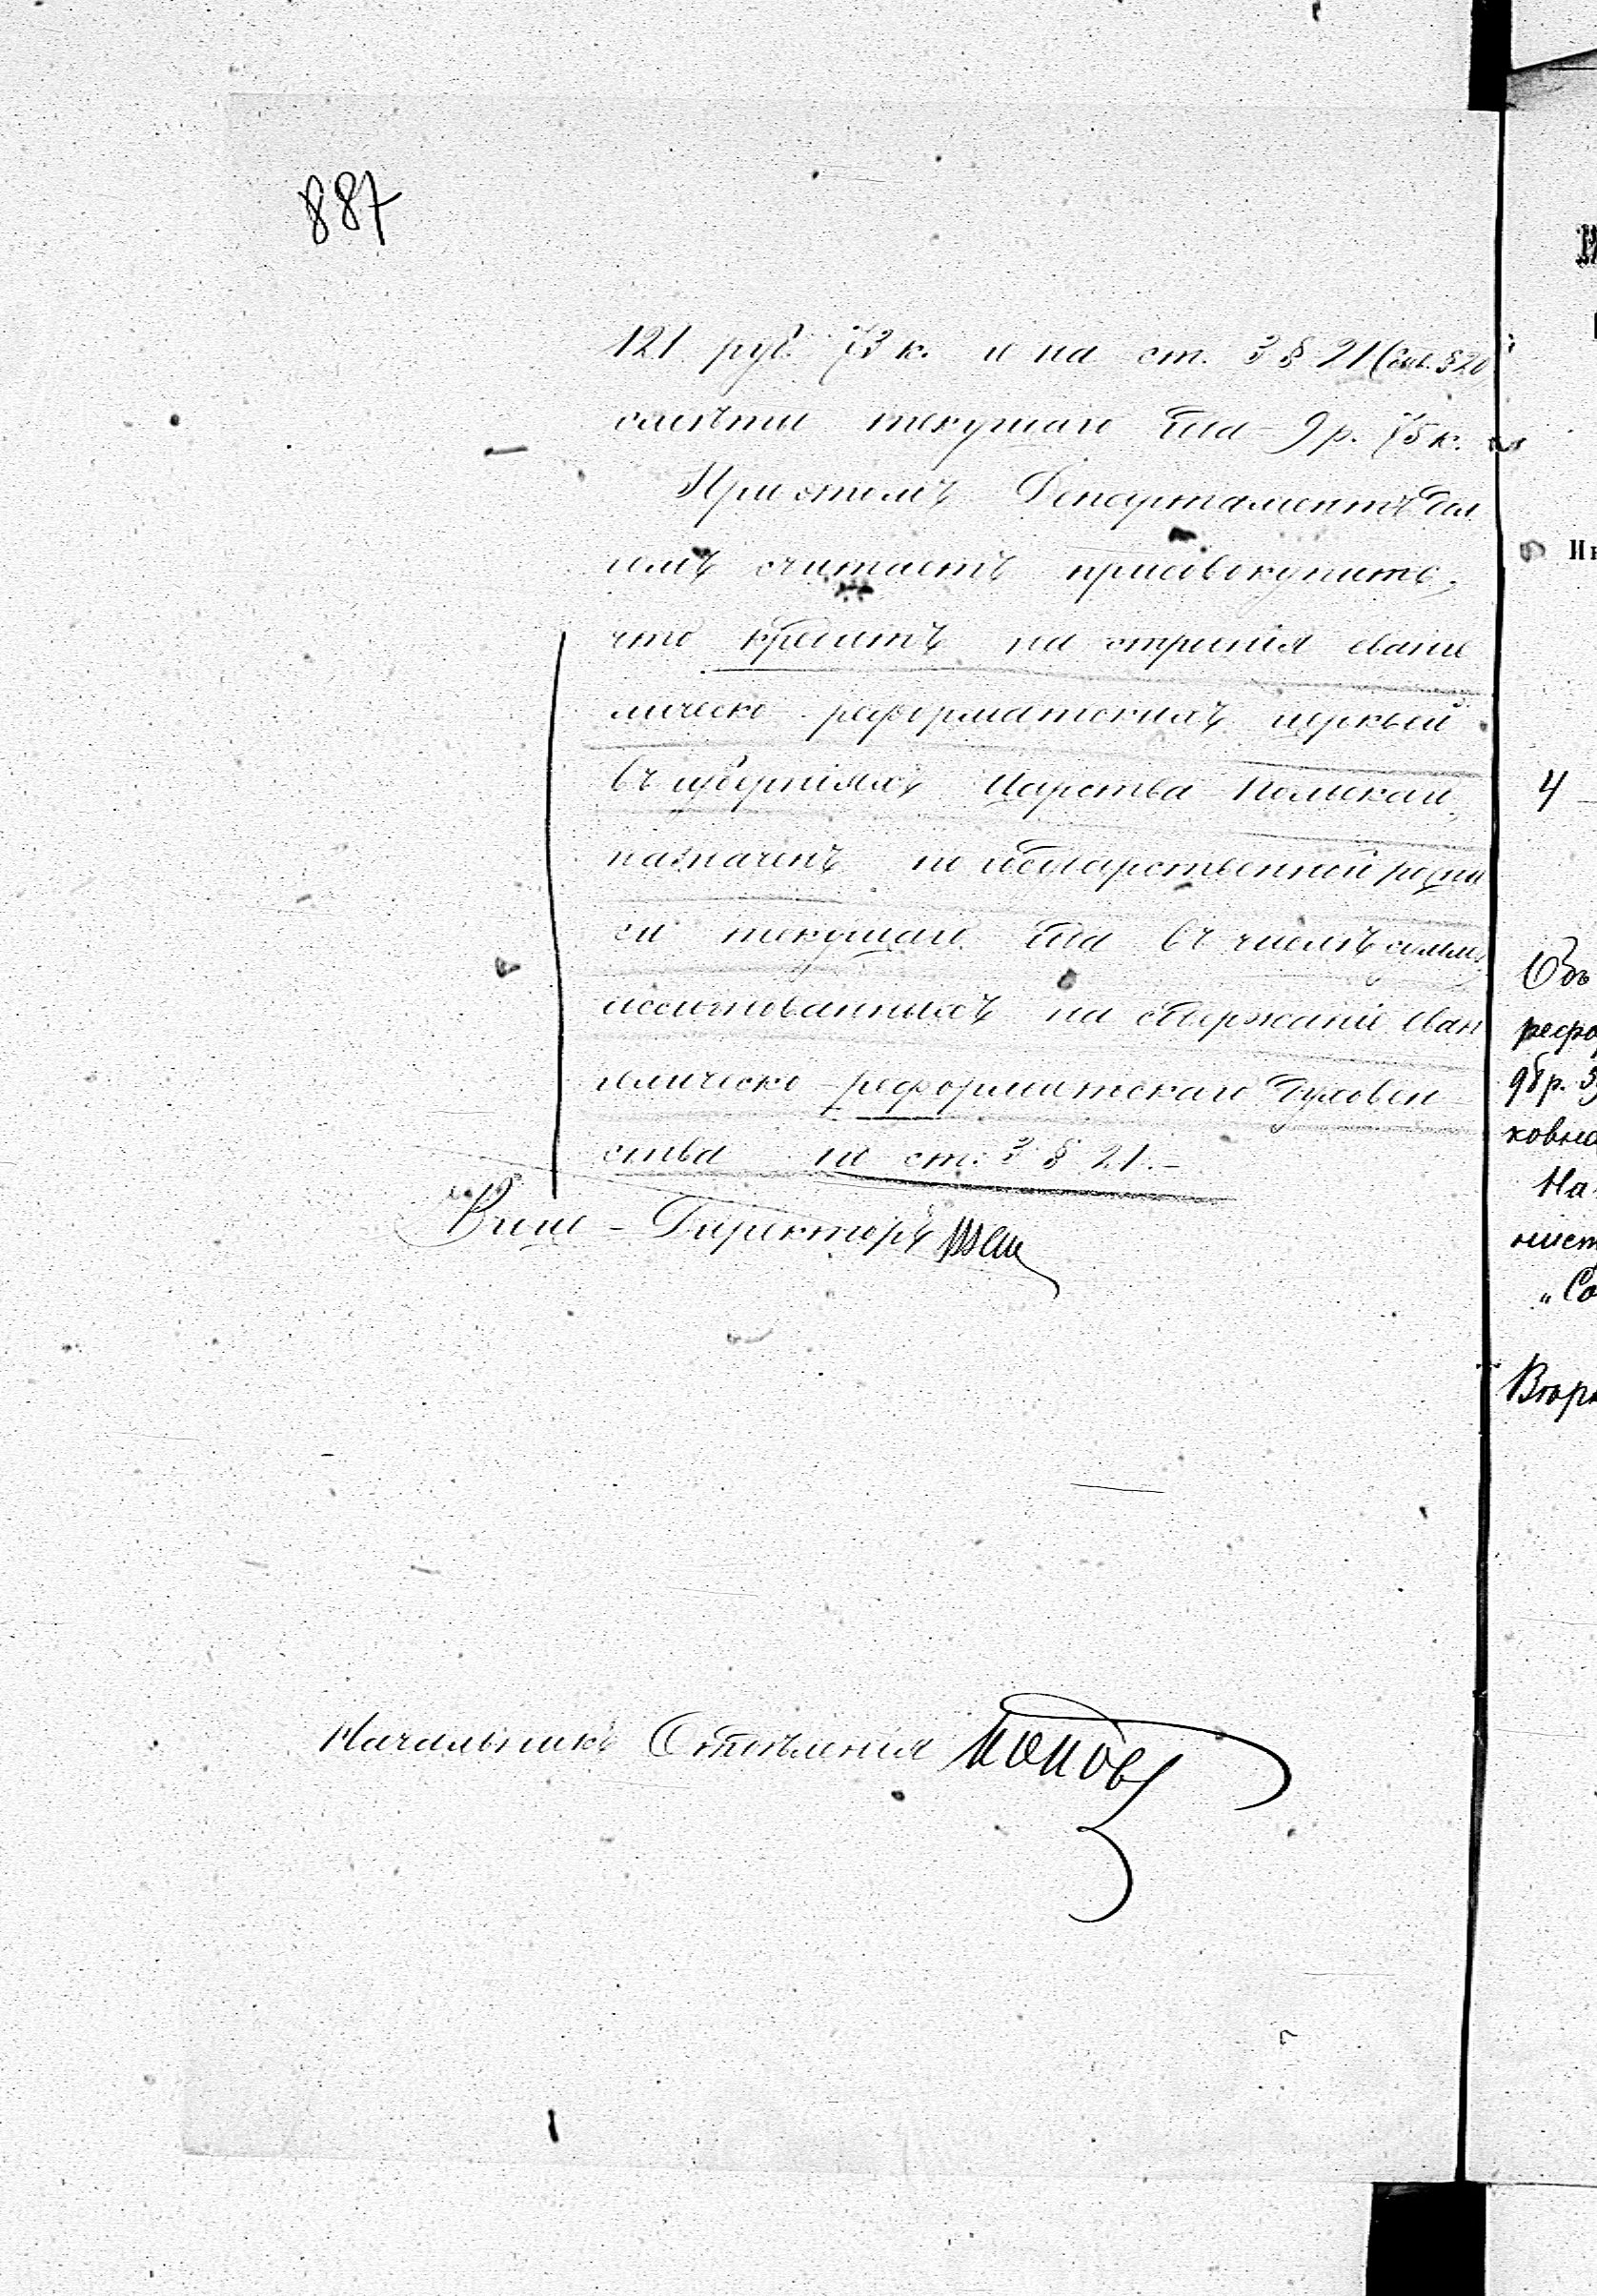 887
121 руб. 73 к. и на ст. 3 § 21 (
смѣты текущаго года 9 р. 75 к.
При этомъ Департаментъ дол
гомъ считаетъ присовокупить,
что кредитъ на строенія еванге
лическо реформатскихъ церквей
въ губерніяхъ Царства Польскаго,
назначенъ по Государственной роспи
си текущаго года въ числѣ суммъ,
ассигнованныхъ на содержаніе еван
гелическо-реформатскаго Духовен
ства по ст. 3 § 21.-
Вице-Директоръ
Начальникъ Отдѣленія Поповъ
4
рефор
ковна
На
нист
„Со